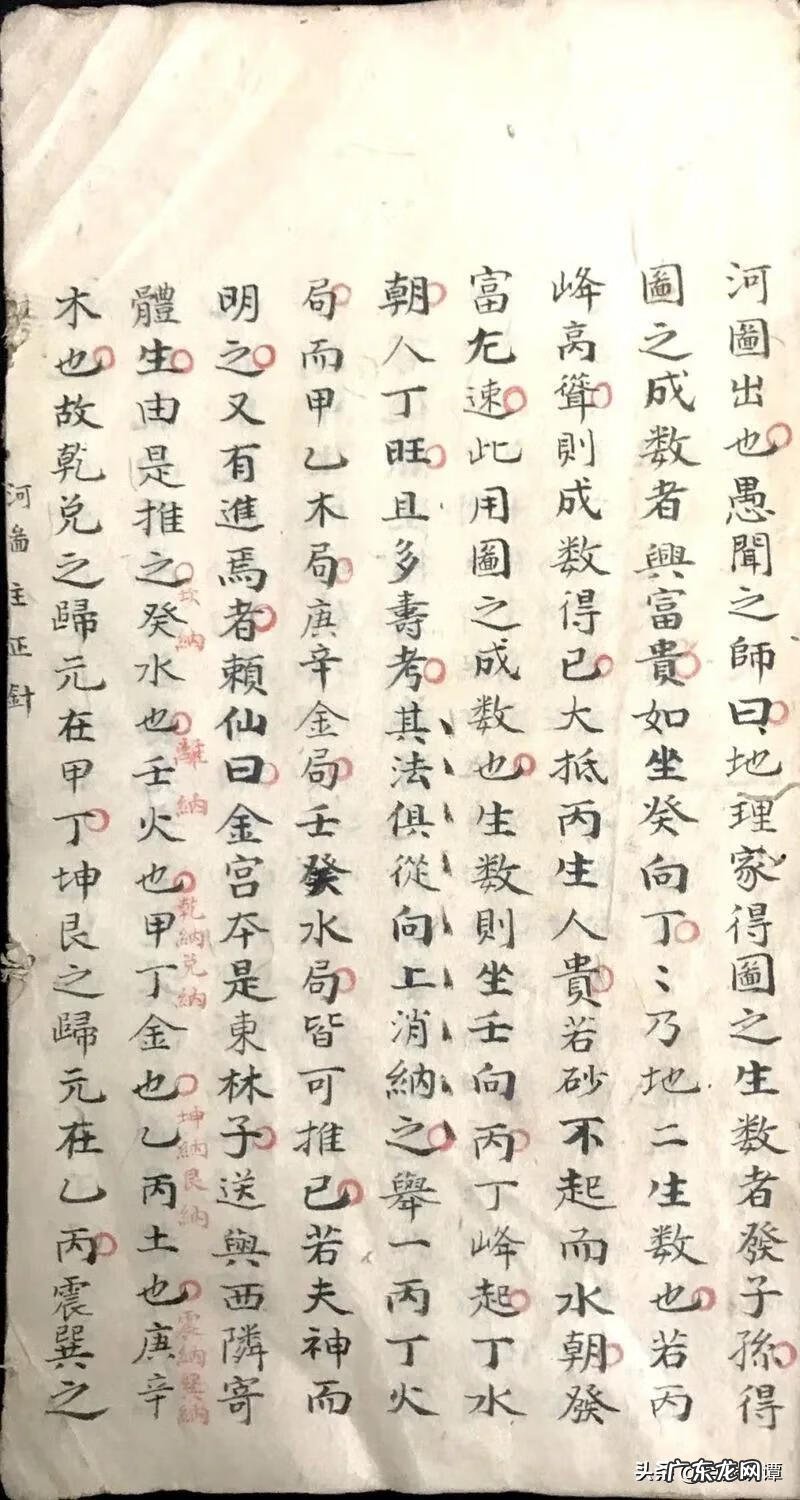 河圖出也愚聞之師曰地理家得圖之生数者發子孫得
圖之成数者興富貴如坐癸向丁〻乃地二生数也若丙
峰高聳則成数得已大抵丙生人貴若砂不起而水朝發
富尤速此用圖之成数也生数則坐壬向丙丁峰起丁水
朝人丁旺且多壽考其法俱從向上消納之舉一丙丁火
局而甲乙木局庚辛金局壬癸水局皆可推已若夫神而
明之又有進焉者賴仙曰金宫夲是東林子送與西隣寄
體生由是推之癸水也壬火也甲丁金也乙丙土也庚辛
坎納
離納
乾納兑納
坤納艮納
震納巽納
木也故乾兑之歸元在甲丁坤艮之歸元在乙丙震巽之
河圖主正針
头条
广东龙网
谭